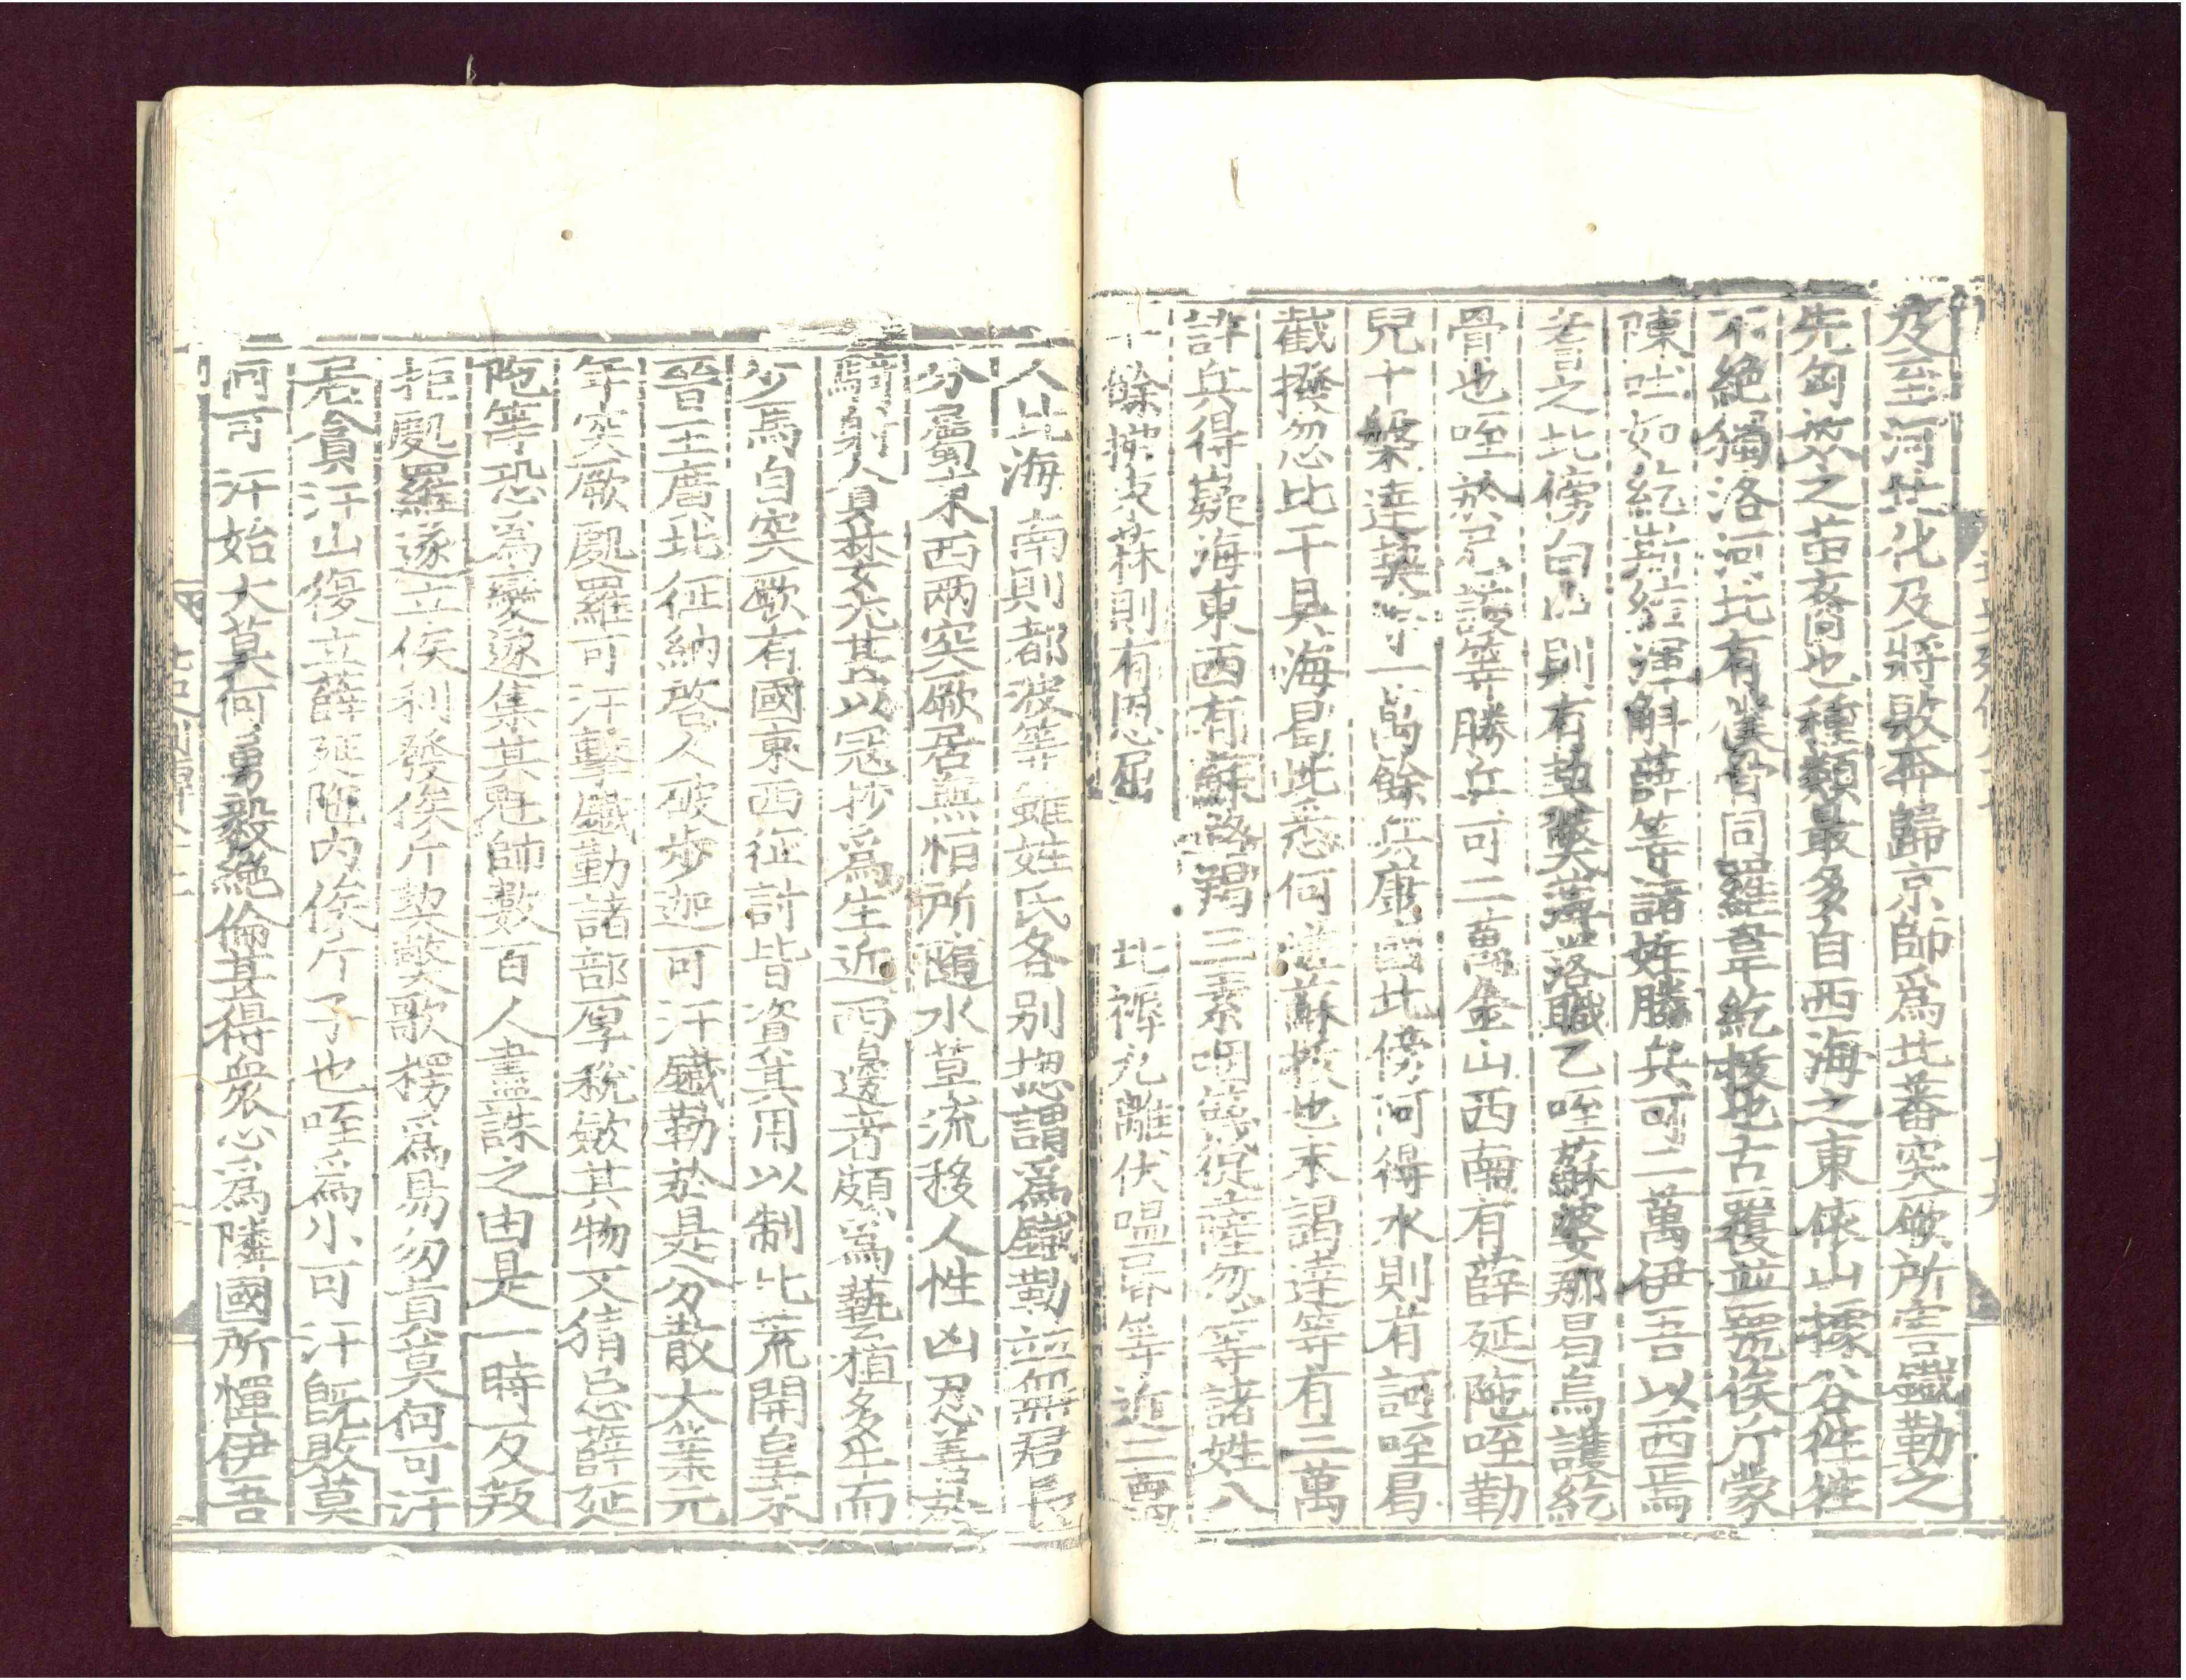 及至河北化及將敗再歸京師爲北蕃突厥所害鐵勒之
先匈奴之苗裔也種類最多自西海之東依山據谷往往
不絕獨洛河北有僕骨同羅韋紇拔也古覆並號俟斤蒙
陳吐如紇斯結渾斛薛等諸姓勝兵可二萬伊吾以西焉
耆之北傍白山則有契弊薄落職乙咥蘇婆那曷烏護紇
骨也咥於尼護等勝兵可二萬金山西南有薛延陁咥勒
兒十槃達契等一萬餘兵康國北傍河得水則有訶咥曷
截撥忽比干具海曷比悉何嵯蘇拔也末謁達等有三萬
許兵得嶷海東西有蘇路羯三素咽篾促薩忽等諸姓八
千餘拂菻東則有恩屈 北褥九離伏嗢昬等近二萬
人北海南則都波等雖姓氏各別揔謂爲鐵勒並無君長
分屬東西兩突厥居無恒所隨水草流移人性凶忍善於
騎射人貪婪尤甚以寇抄爲生近西邊者頗爲藝植多牛而
少馬自突厥有國東西征討皆資其用以制北荒開皇末
晉王廣北征納啓人破步迦可汗鐵勒於是分散大業元
年突厥處羅可汗擊鐵勒諸部厚稅斂其物又猜忌薛延
陁等恐爲變遂集其魁帥數百人盡誅之由是一時反叛
拒處羅遂立俟利發俟斤契弊歌楞爲易勿真莫何可汗
居貪汗山復立薛延陁內俟斤子也咥爲小可汗旣敗莫
何可汗始大莫何勇毅絕倫甚得衆心爲隣國所憚伊吾